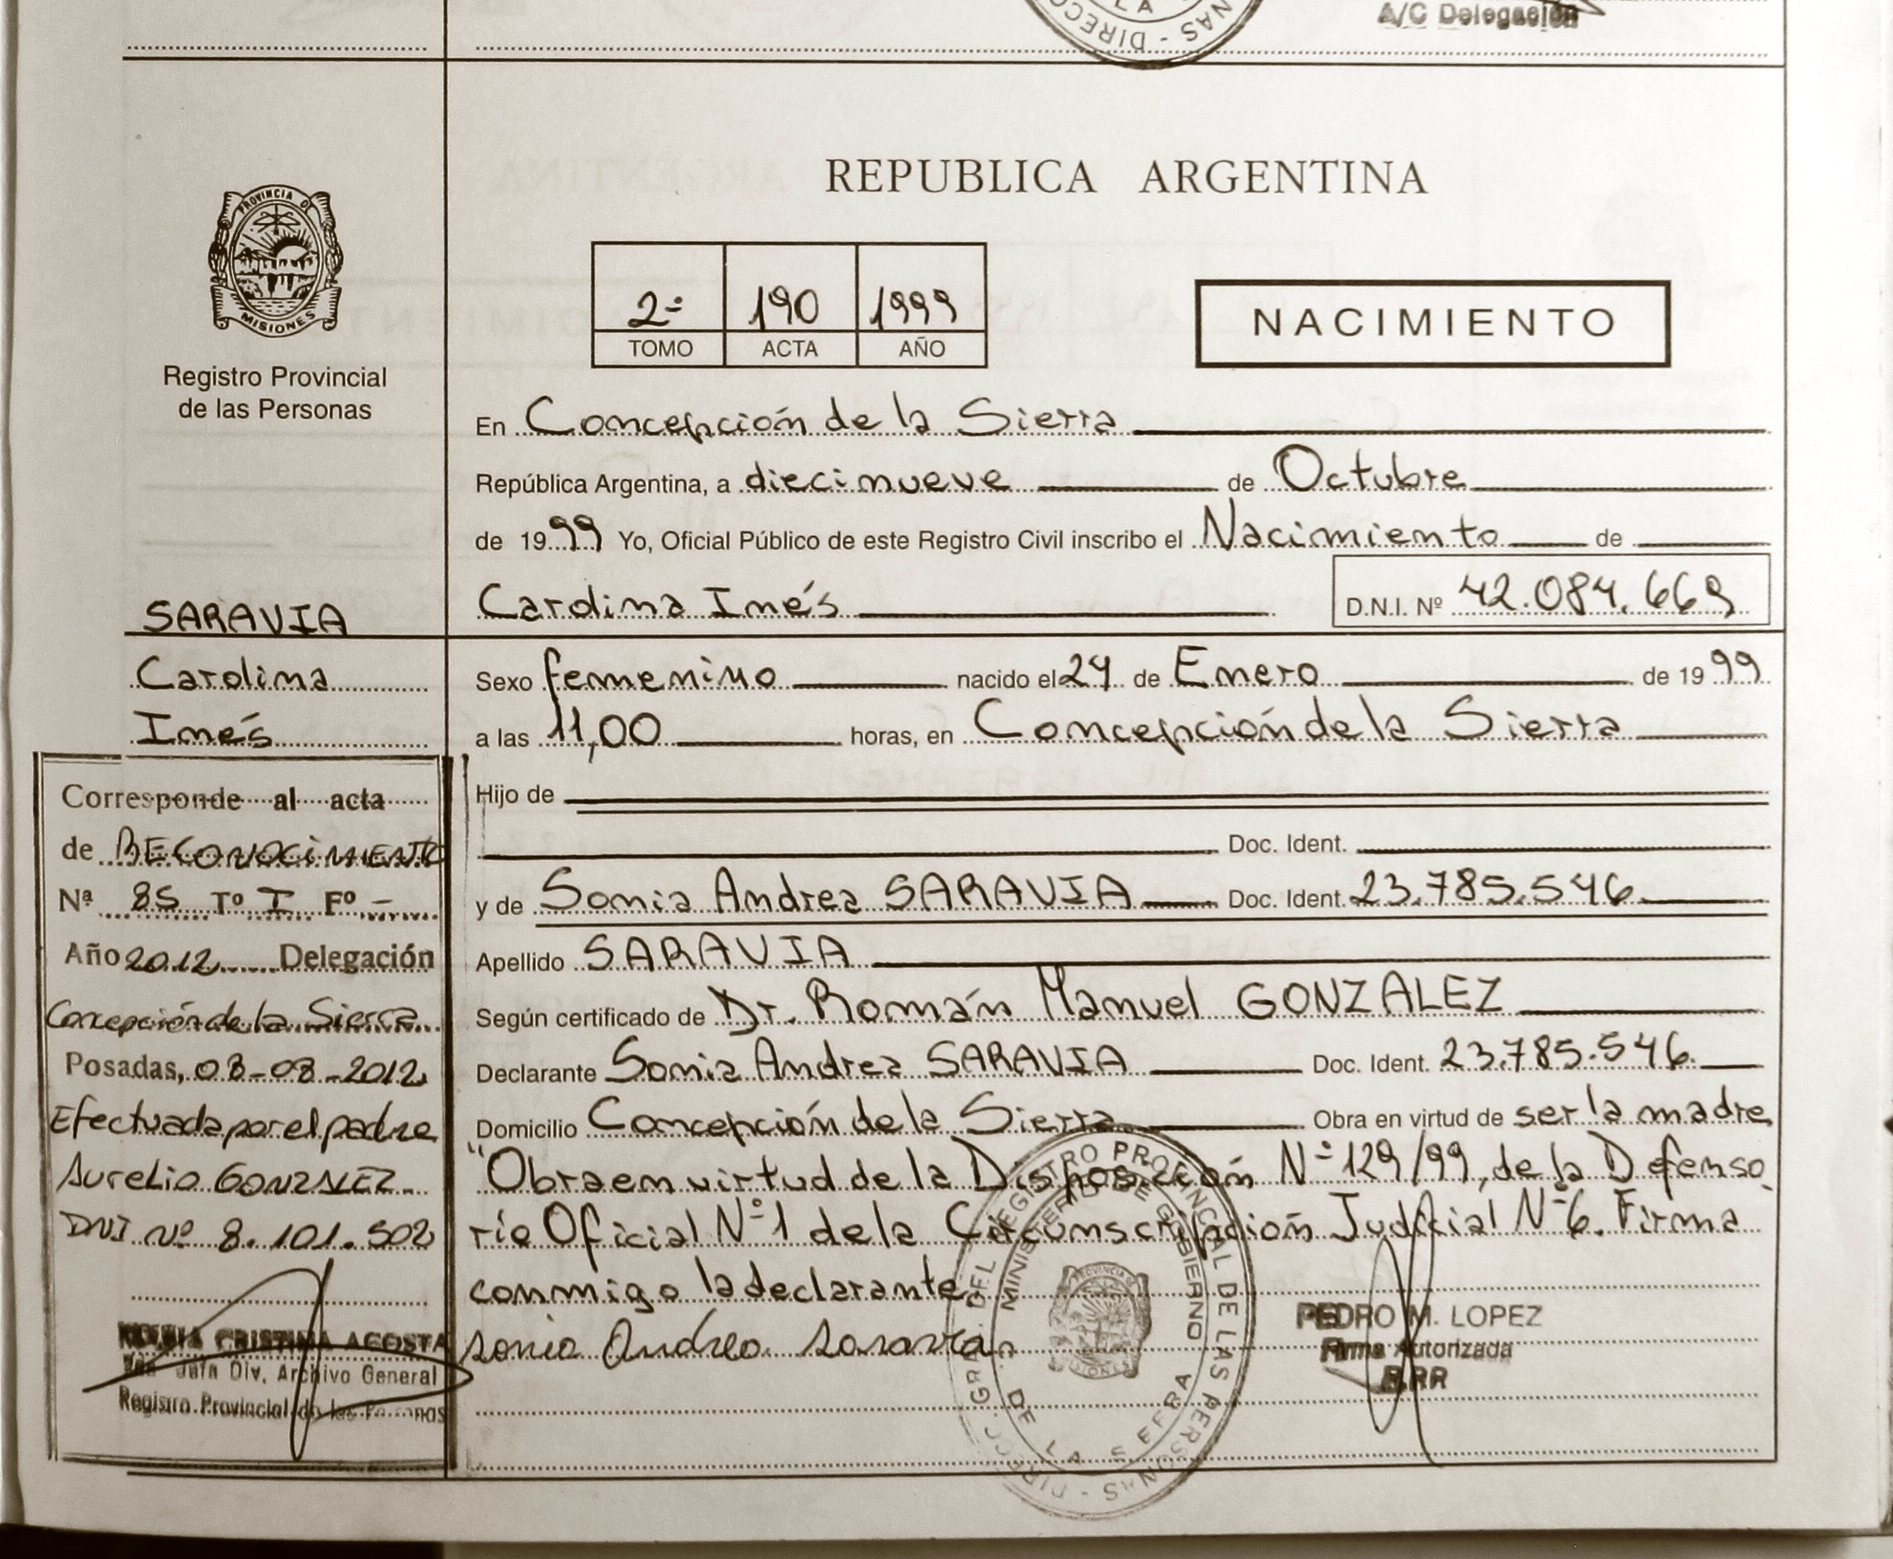 A/C Delegación
REPUBLICA ARGENTINA
PROVINCIA DE
MISIONES
Registro Provincial
de las Personas
2º 190 1999
TOMO ACTA AÑO
NACIMIENTO
En Concepción de la Sierra
República Argentina, a diecinueve de Octubre
de 1999 Yo, Oficial Público de este Registro Civil inscribo el Nacimiento de
Cardina Inés D.N.I. Nº 42.084.669
SARAVIA
Carolina
Inés
Sexo femenino nacido el 24 de Enero de 1999
a las 11,00 horas, en Concepción de la Sierra
Hijo de
Doc. Ident.
y de Sonia Andrea SARAVIA Doc. Ident. 23.785.546
Apellido SARAVIA
Según certificado de Dr. Román Manuel GONZALEZ
Declarante Sonia Andrea SARAVIA Doc. Ident. 23.785.546.
Domicilio Concepción de la Sierra Obra en virtud de ser la madre
"Obra en virtud de la Disposición Nº 129/99, de la Defenso
ría Oficial Nº 1 de la Circunscripción Judicial Nº 6. Firma
conmigo la declarante.
Sonia Andrea Saravia
Corresponde al acta
de RECONOCIMIENTO
Nª 85 Tº I Fº -
Año 2012 Delegación
Concepción de la Sierra
Posadas, 03-08-2012
Efectuada por el padre
Aurelio GONZALEZ
DNI Nº 8.101.502
MARIA CRISTINA ACOSTA
Jefa Div. Archivo General
Registro Provincial de las Personas
PEDRO M. LOPEZ
Firma Autorizada
R.P.P.
DIRECC. GRAL. DEL REGISTRO PROVINCIAL DE LAS PERSONAS
MINISTERIO DE GOBIERNO
DE LA SIERRA